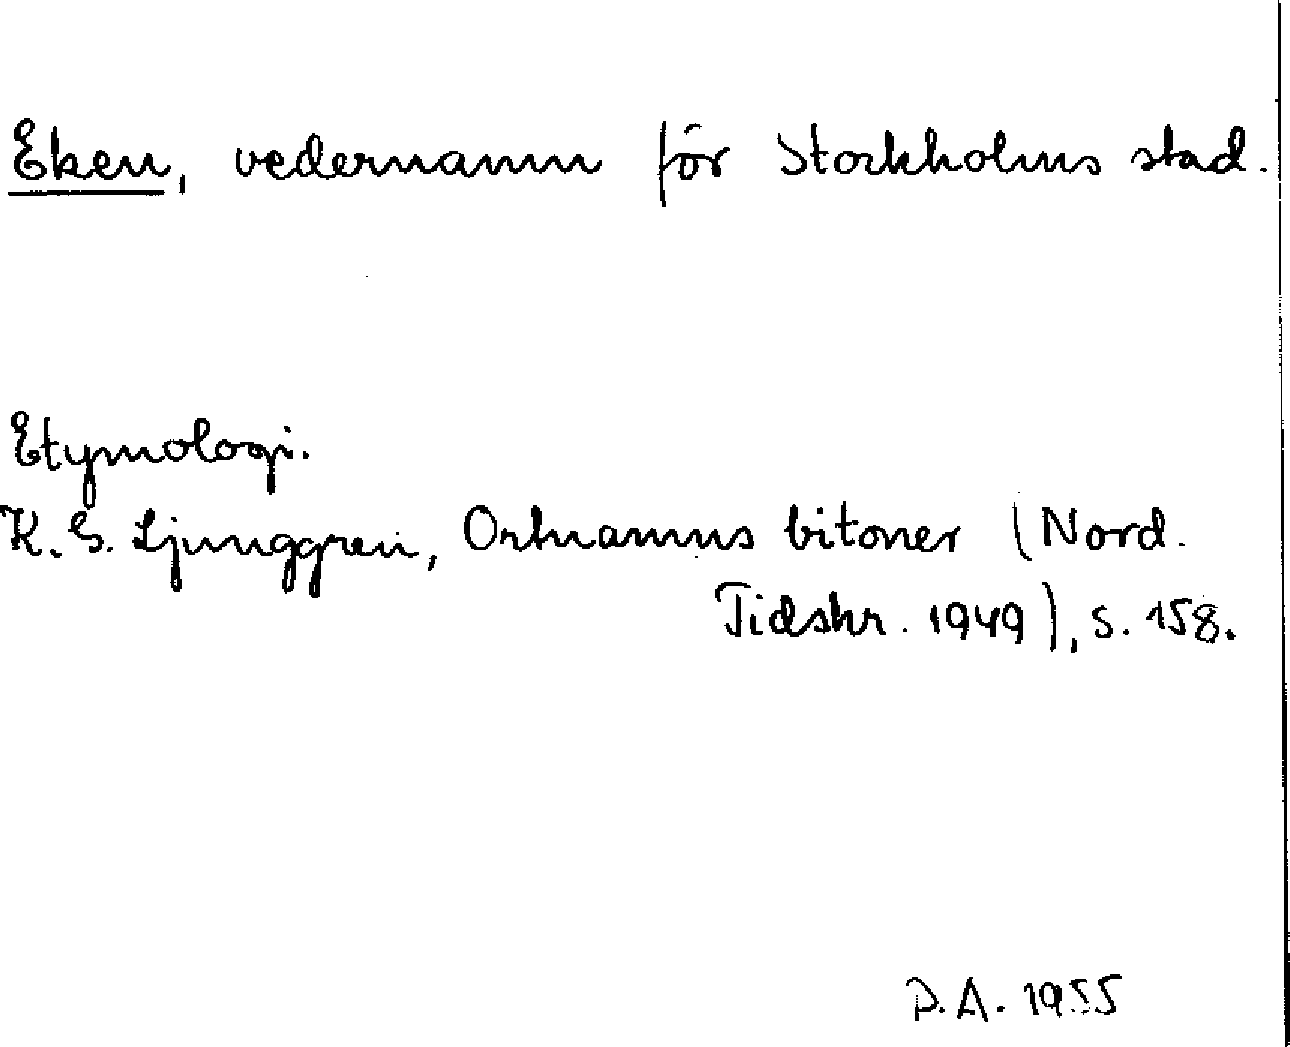 Eken, vedernamn för Stockholms stad.
Etymologi.
K. G. Ljunggren, Ortnamns bitoner (Nord.
Tidskr. 1949), s. 158.
D.A. 1955